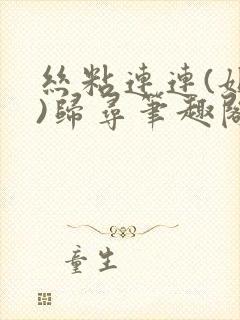 絲粘連連(
)歸尋筆趣閣
童生